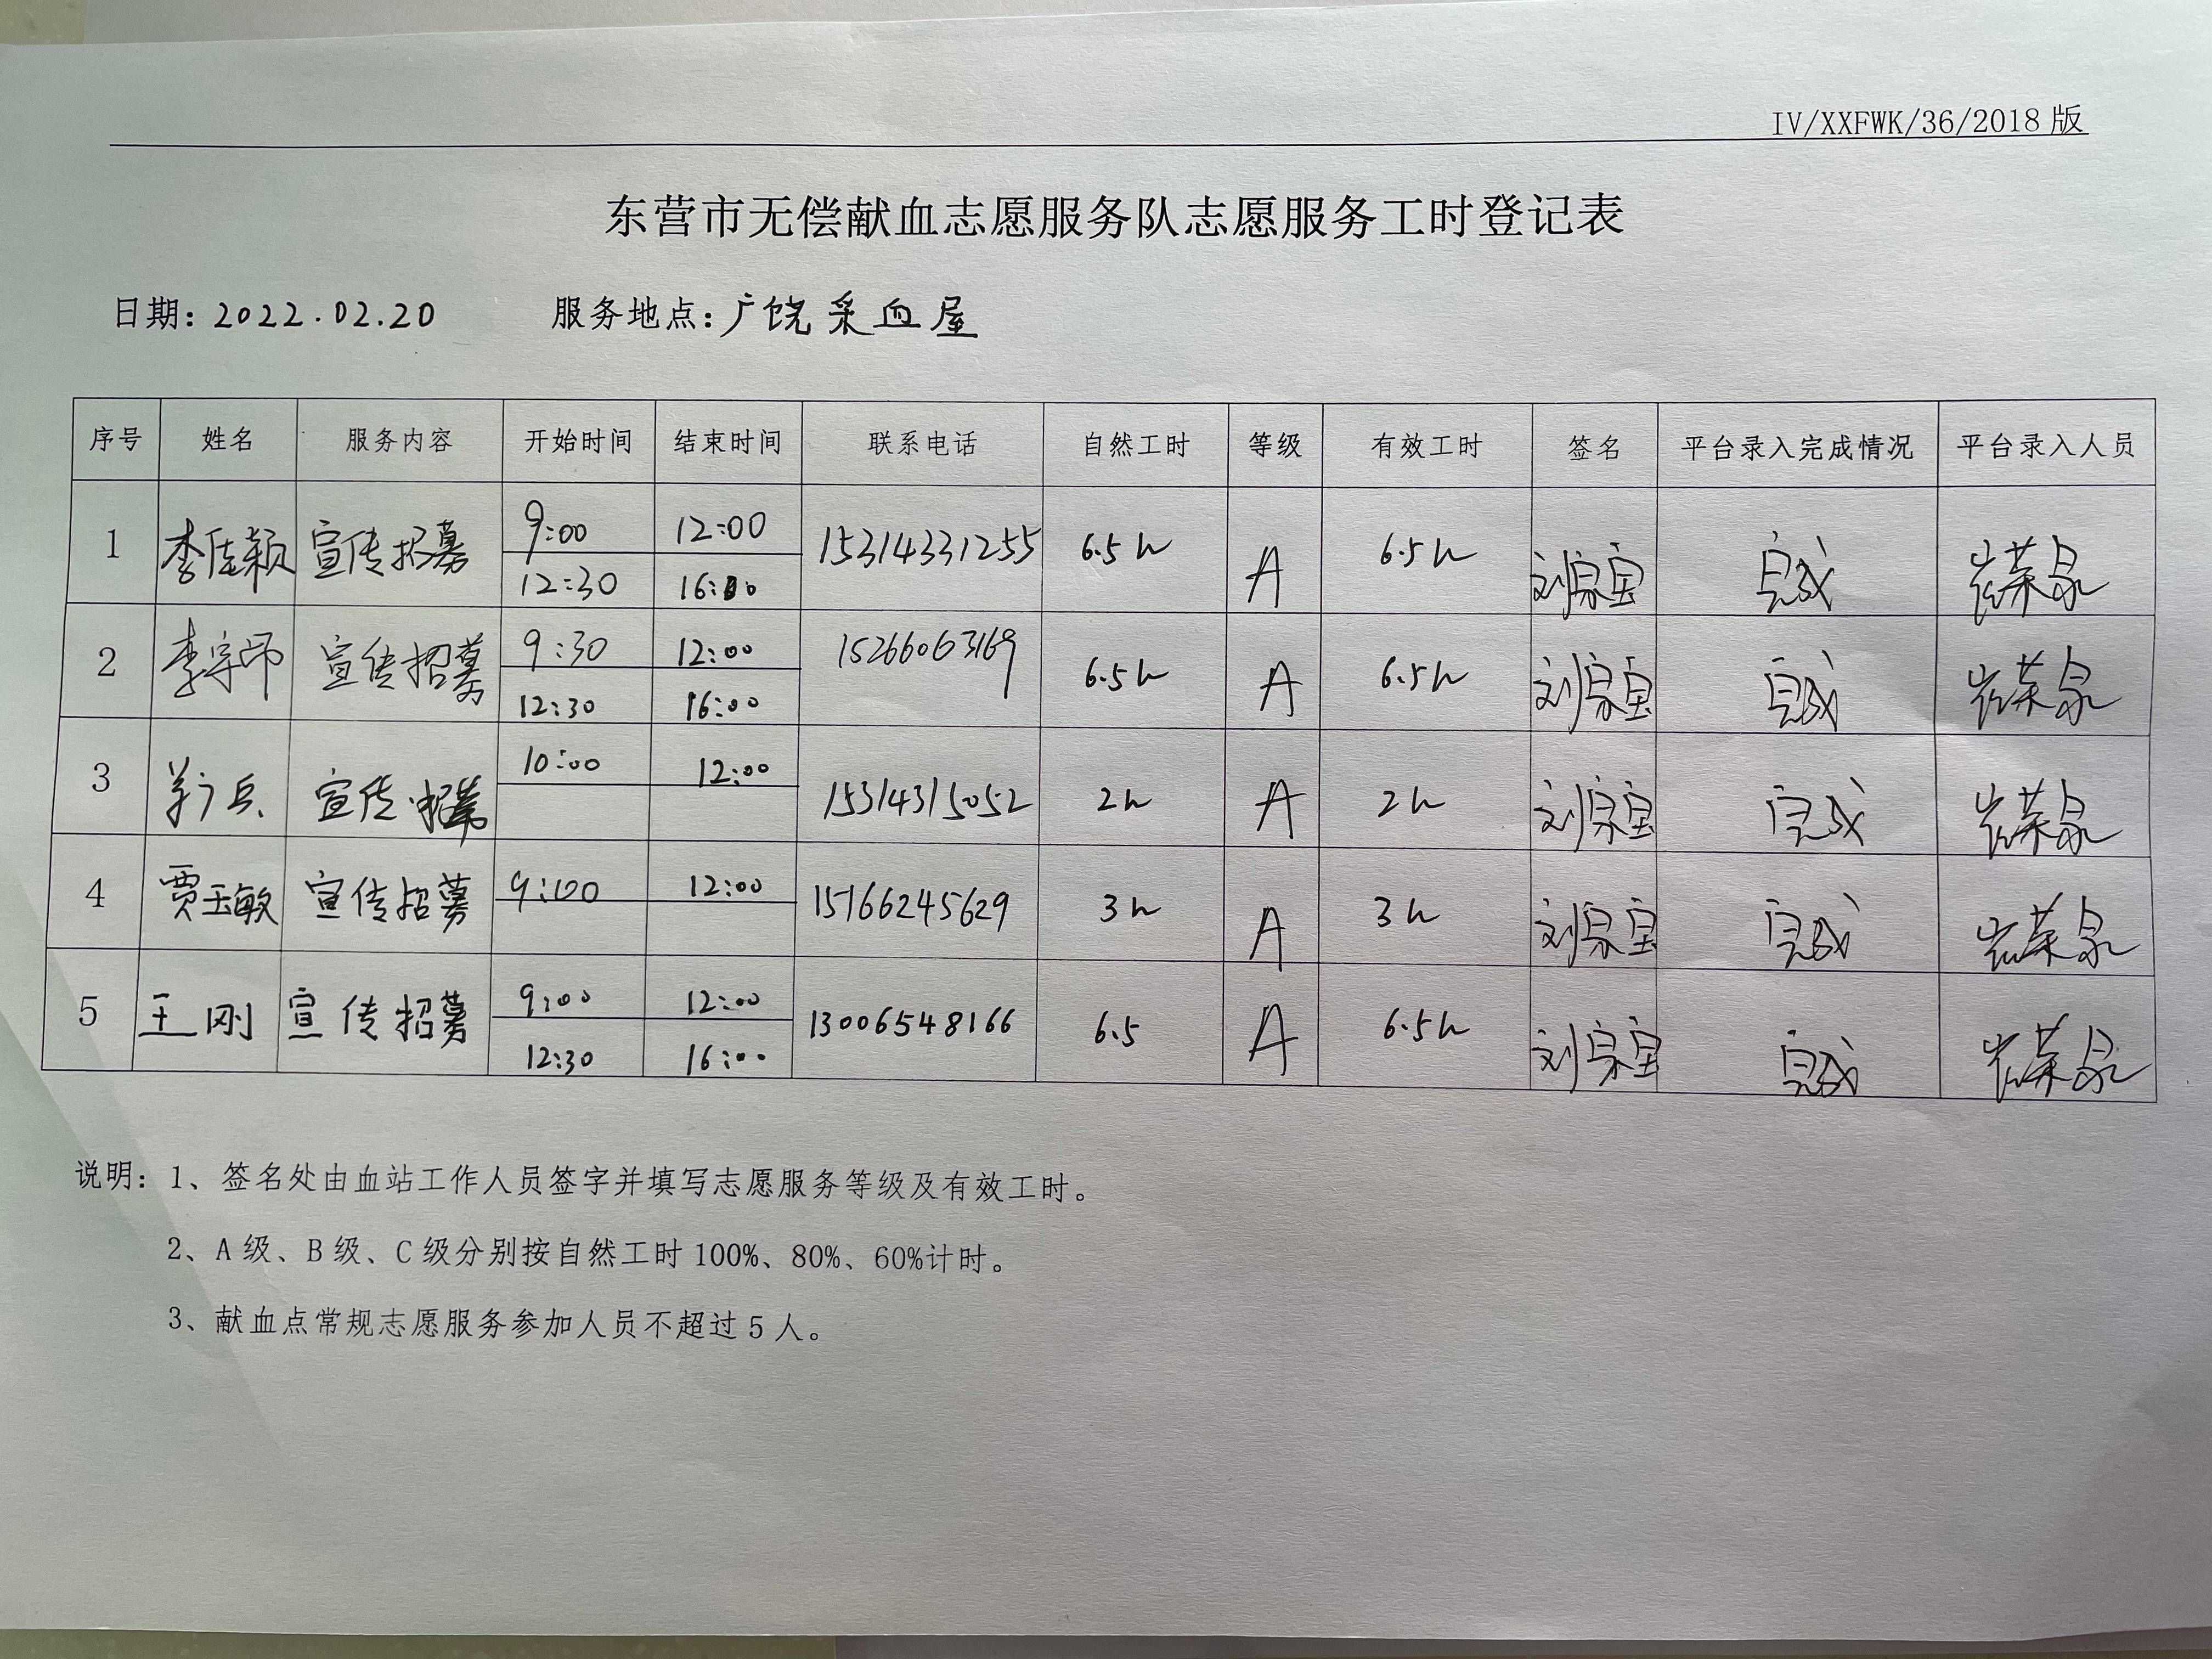 IV/XXFWK/36/2018版
东营市无偿献血志愿服务队志愿服务工时登记表
日期: 2022.02.20 服务地点: 广饶采血屋
序号 姓名 服务内容 开始时间 结束时间 联系电话 自然工时 等级 有效工时 签名 平台录入完成情况 平台录入人员
1 李佳颖 宣传招募 9:00 12:00 15314331255 6.5h A 6.5h 完成
12:30 16:00
2 宣传招募 9:30 12:00 15266063169 6.5h A 6.5h 完成
12:30 16:00
3 宣传招募 10:00 12:00 15314315052 2h A 2h 完成
4 贾玉敏 宣传招募 9:00 12:00 15166245629 3h A 3h 完成
5 王刚 宣传招募 9:00 12:00 13006548166 6.5 A 6.5h 完成
12:30 16:00
说明: 1、签名处由血站工作人员签字并填写志愿服务等级及有效工时。
2、A级、B级、C级分别按自然工时100%、80%、60%计时。
3、献血点常规志愿服务参加人员不超过5人。